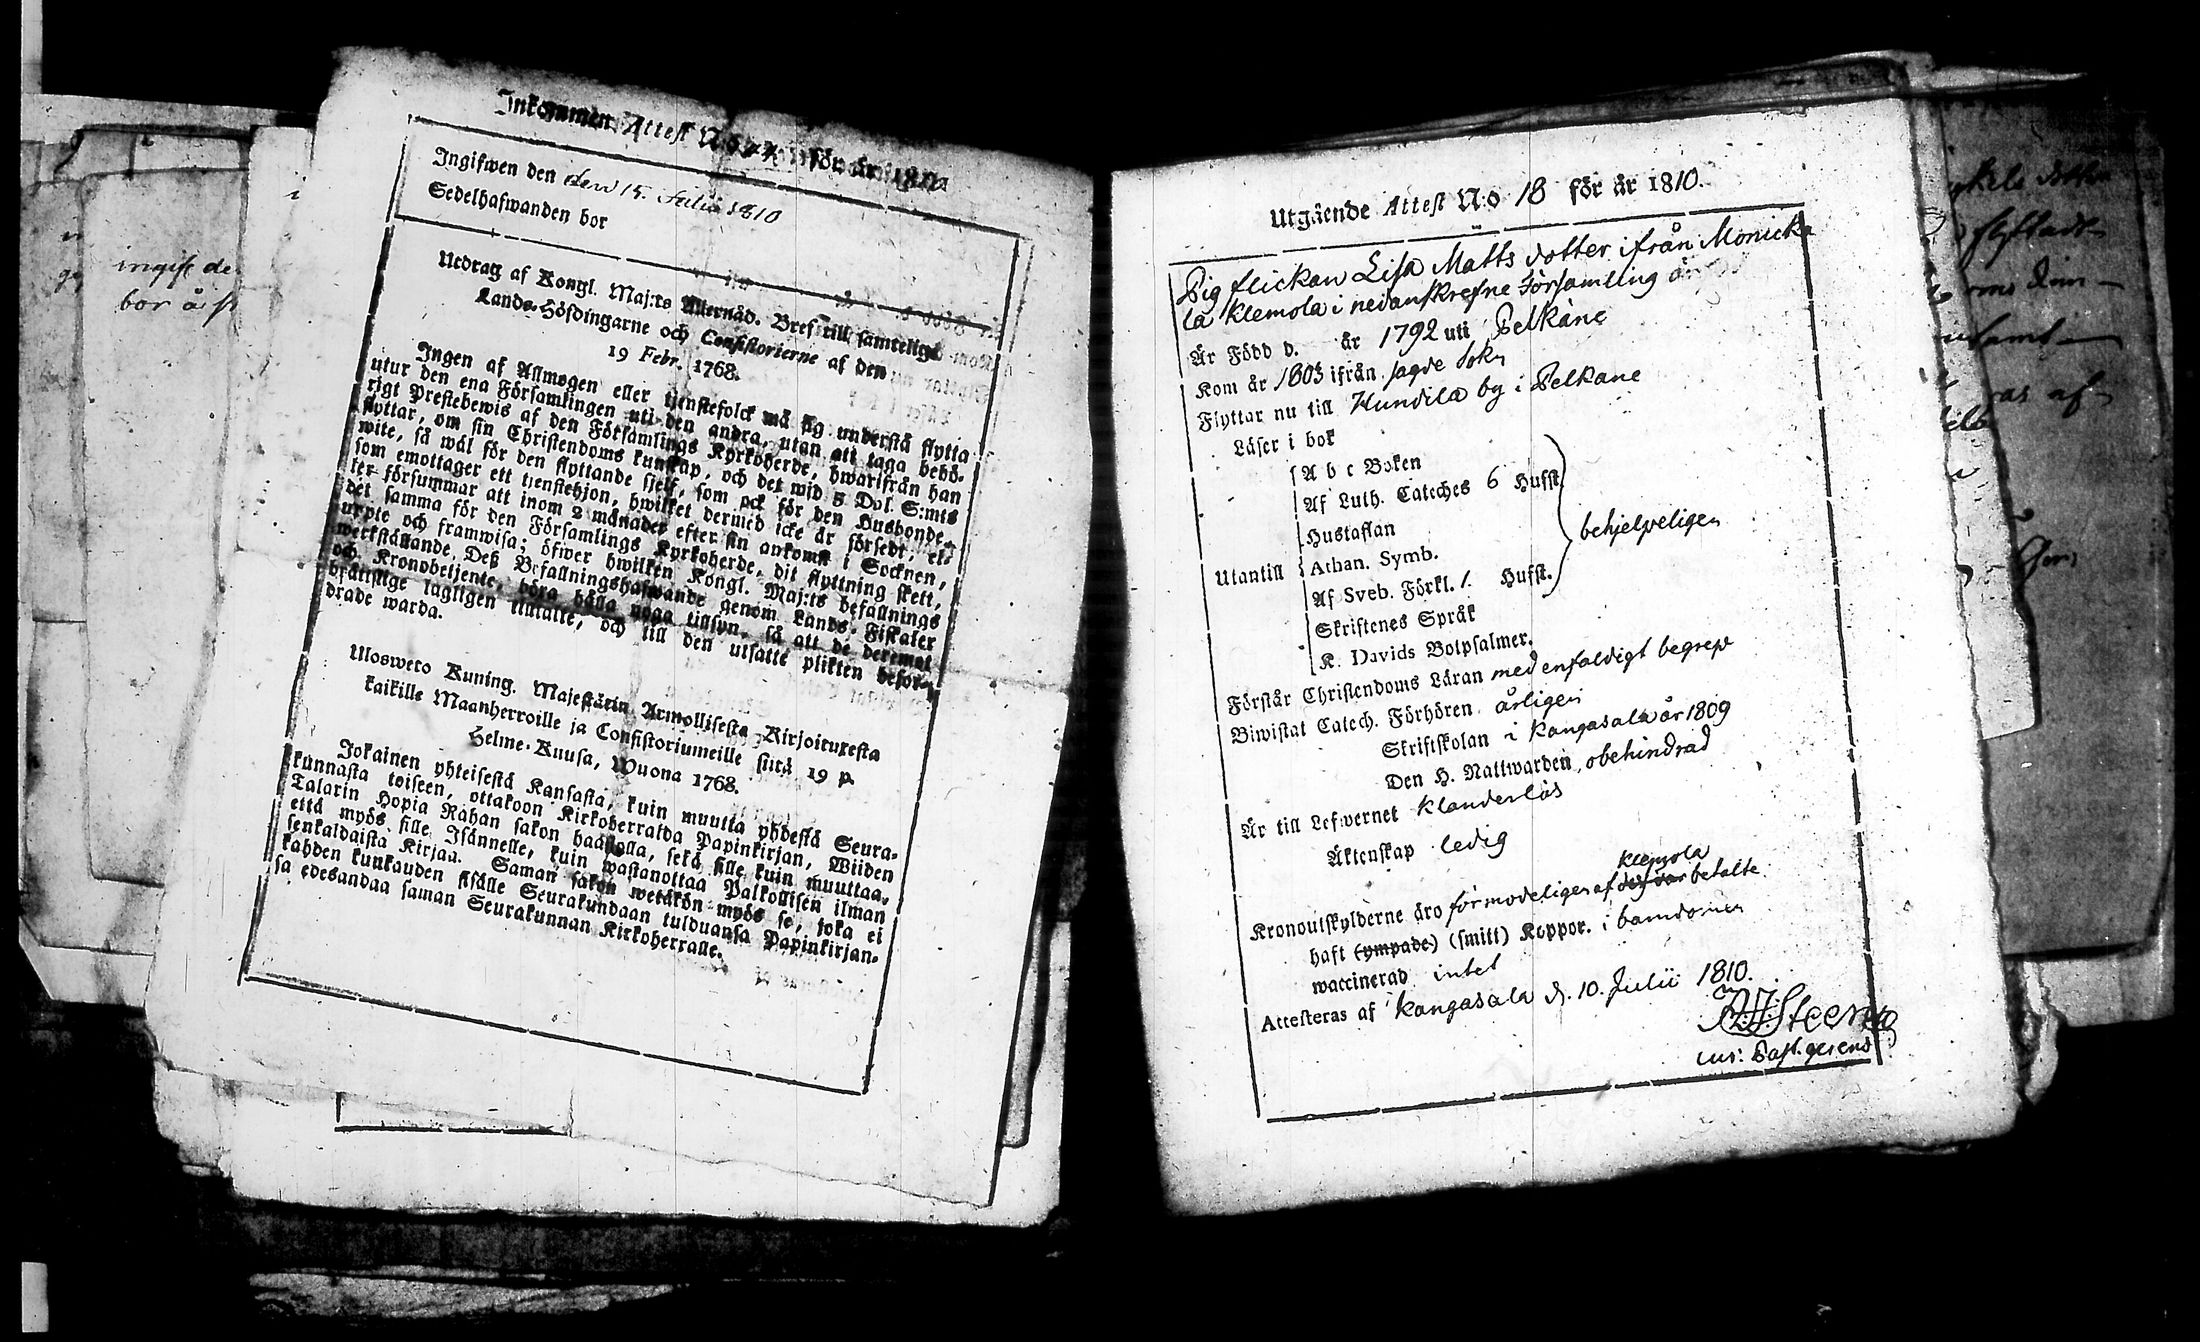 Inkommen Attest N:o för år 1810
Ingifwen den den 15. Julii 1810
Sedelhafwanden bor
Utdrag af Kongl. Maj:ts Allernåd. Bref till samtelige
Lands-Höfdingarne och Consistorierne af den
19 Febr. 1768.
Ingen af Allmogen eller tjenstefolck må sig understå flytta
utur den ena Församlingen uti den andra, utan att taga behö-
rigt Prestebewis af den Församlings Kyrkoherde, hwarifrån han
flyttar, om sin Christendoms kunskap, och det wid 5 Dal. S:mts
wite, så wäl för den flyttande sjelf, som ock för den Husbonde,
som emottager ett tjenstehjon, hwilket dermed icke är försedt, el-
ler försummar att inom 2 månader efter sin ankomst i Socknen,
det samma för den Församlings Kyrkoherde, dit flyttning skett,
uppte och framwisa; öfwer hwilken Kongl. Maj:ts befallnings
werkställande, Deß Befallningshafwande genom Lands-Fiskaler
och Kronobetjente, böra hålla noga tillsyn, så att de deremot
bråtislige lagligen tilltalte, och till den utsatte plikten befor-
drade warda.
Uloswето Kuning. Majestätin Armollisesta Kirjoituxesta
kaikille Maanherroille ja Consistoriumeille siitä 19 p.
Helme-Kuusa, Wuona 1768.
Jokainen yhteisestä Kansasta, kuin muutta yhdestä Seura-
kunnasta toiseen, ottakoon Kirkoherralda Papinkirjan, Wiiden
Talarin Hopia Rahan sakon haastolla, sekä sille kuin muuttaa,
että myös sille Isännelle, kuin wastanottaa Palkollisen ilman
senkaldaista Kirjaa. Saman sakon wetäkön myös se, joka ei
kahden kuukauden sisälle Seurakundaan tulduansa Papinkirjan-
sa edesandaa saman Seurakunnan Kirkoherralle.
ingif de
bor å
Utgående Attest N:o 18 för år 1810.
Pigflickan Lisa Matts dotter ifrån Monicka
la Klemola i nedanskrefne Församling är
Är Född d. år 1792 uti Pelkäne
Kom år 1803 ifrån sagde Sokn
Flyttar nu till Hundila by i Pelkäne
Läser i bok
A b c Boken
Af Luth. Cateches 6 Hufst.
Hustaflan
behjelpeligen
Utantill
Athan. Symb.
Af Sveb. Förkl. 1. Hufst.
Skriftenes Språk
K. Davids Botpsalmer.
Förstår Christendoms Läran med enfaldigt begrep
Biwistat Catech. Förhören årligen
Skriftskolan i Kangasala år 1809
Den H. Nattwarden, obehindrad
Är till Lefwernet klanderlös
Äktenskap ledig
Klemola
Kronoutskylderne äro förmodeligen af betalte
haft (ympade) (smitt) Koppor. i barndomen
waccinerad intet
Attesteras af Kangasala d. 10. Julii 1810.
Steen
Past. gerens